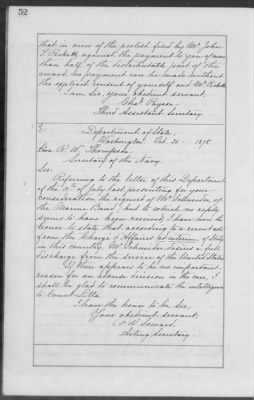 52
that in view of the protest filed by Mr. John
T. Pickett, against the payment to you of more
than half of the distributable part of the
award, no payment can be made without
the explicit consent of yourself and Mr. Pickett.
I am, Sir, your obedient servant,
Chas. Payson
Third Assistant Secretary
Department of State,
Washington, Oct. 1878.
Hon. R. W. Thompson
Secretary of the Navy.
Sir:
Referring to the letter of this Department
of the 10th of July last, presenting for your
consideration the request of Mr. Schneider of
the Marine Band, but to which no reply
seems to have been received, I have now the
honor to state that according to a recent note
from the Chargé d'Affaires ad interim of Italy
in this country, Mr. Schneider desires a full
discharge from the service of the United States.
If there appears to be no important
reason for an adverse decision in the case, I
shall be glad to communicate the intelligence
to Count Litta.
I have the honor to be, Sir,
Your obedient servant,
F. W. Seward,
Acting Secretary